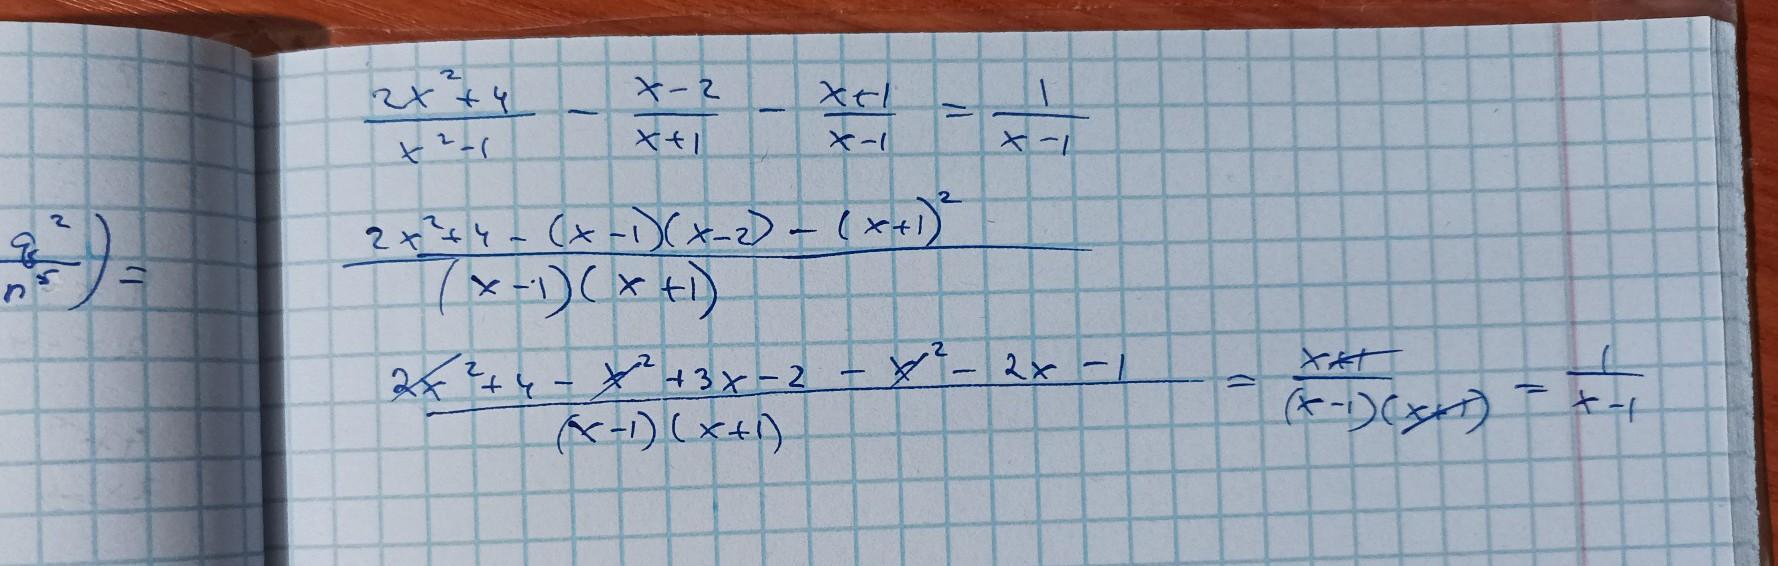 (2x²+4)/(x²-1) - (x-2)/(x+1) - (x+1)/(x-1) = 1/(x-1)
q²/n⁵) =
(2x²+4-(x-1)(x-2)-(x+1)²)/((x-1)(x+1))
(2x²+4-x²+3x-2-x²-2x-1)/((x-1)(x+1)) = (x+1)/((x-1)(x+1)) = 1/(x-1)